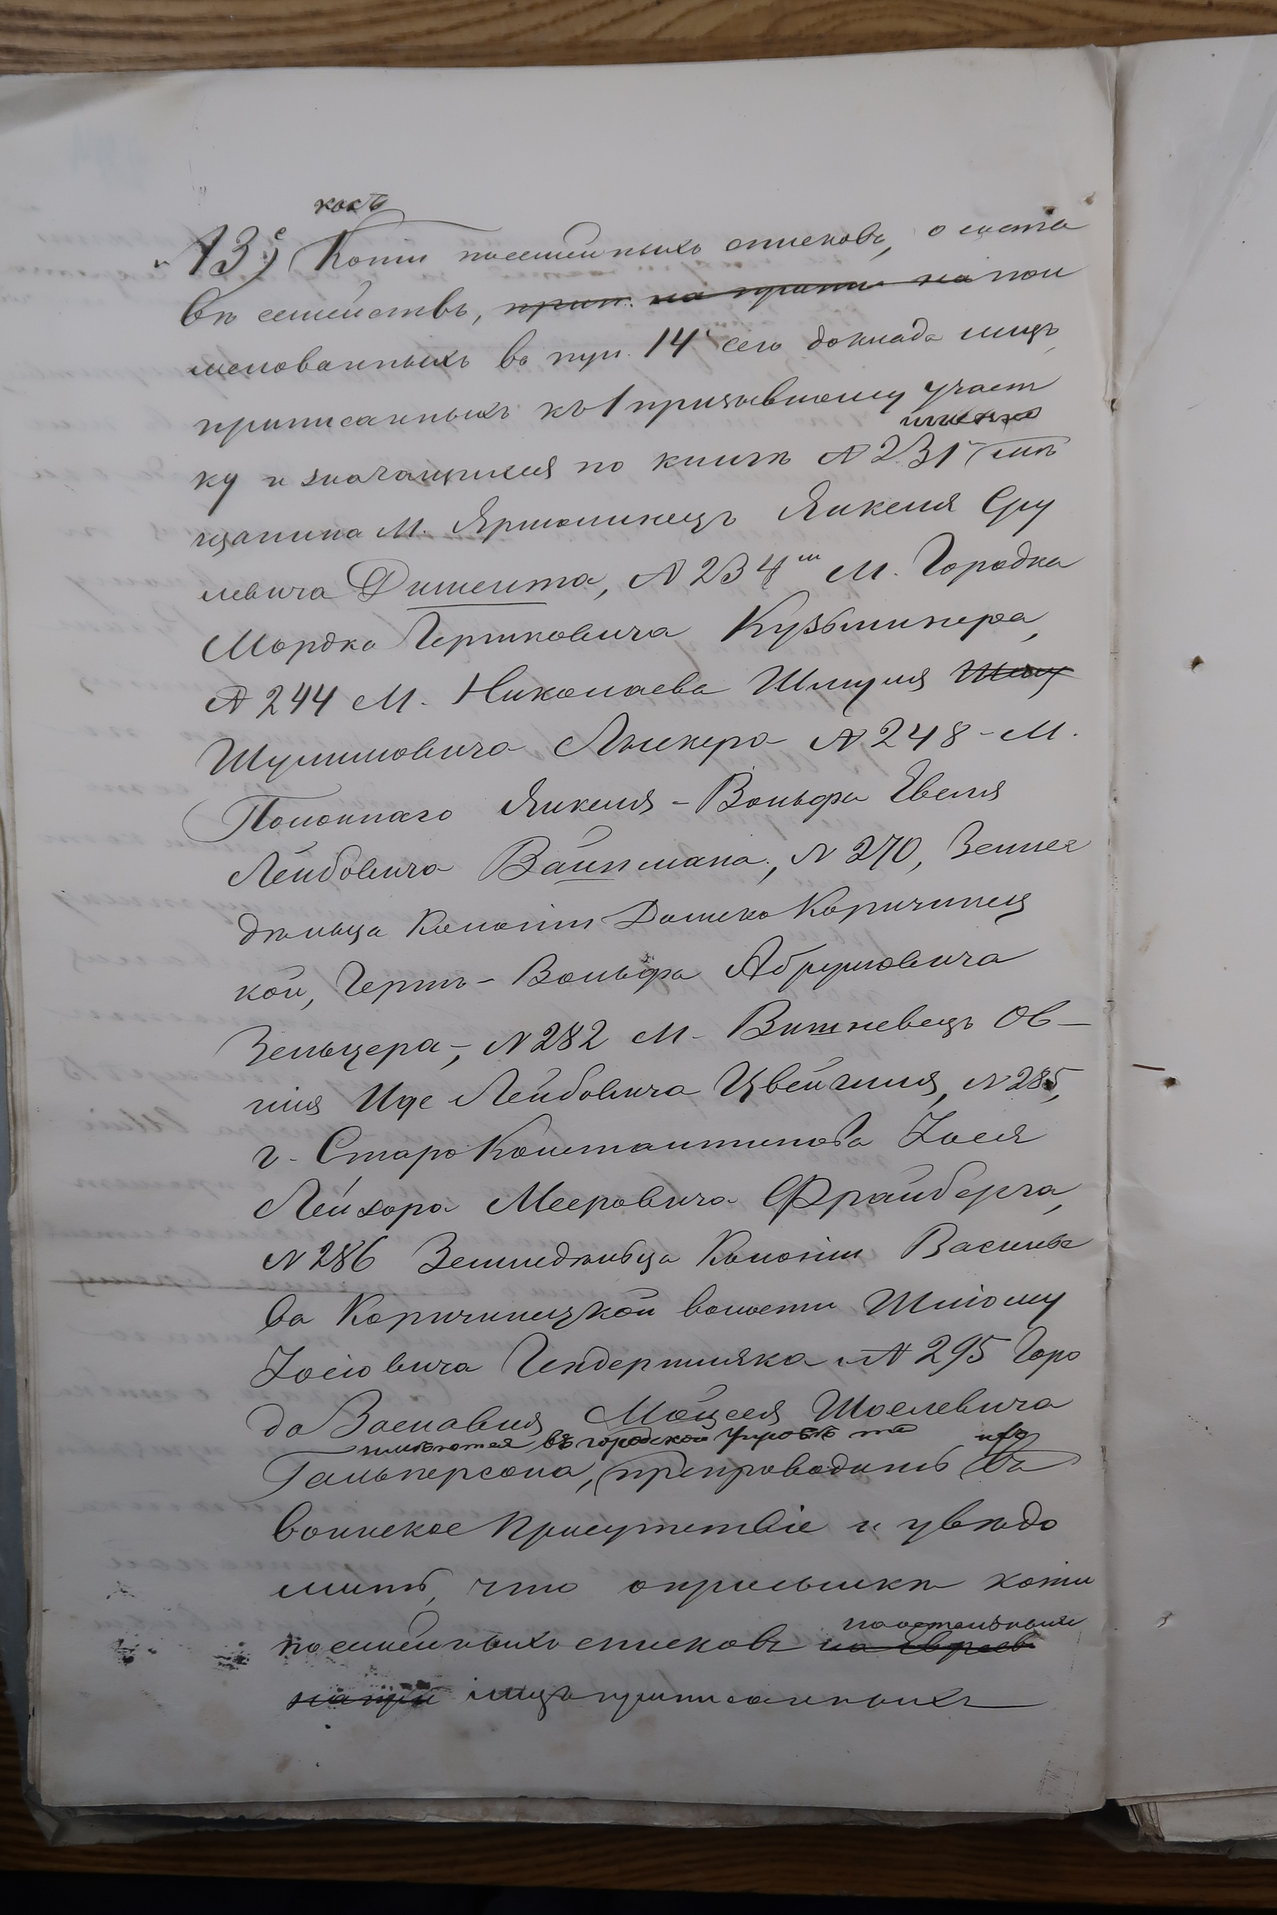 какъ
13) Копіи посемейныхъ списковъ, о соста
вѣ семействъ, на пои
менованныхъ въ пун. 14 сего доклада лицъ
приписанныхъ къ 1 призывному участ
ку и значащихся по книгѣ №231 мѣ
щанина М. Ярмолинецъ Янкеля Сру
левича Димента, №234 М. Городка
Мордко Гершковича Кузьминера,
№244 М. Николаева Шмуля
Шулимовича Ляскера №248 - М.
Полоннаго Янкеля - Вольфа Гвеля
Лейбовича Вайнмана, №270, Землед
дѣльца Колоніи Дашека Каричинец
кой, Гершъ - Вольфа Абрумовича
Зельцера, №282 М. Вишневецъ Ов-
шія Иде Лейбовича Цвейгиля, №285,
г. Староконстантинова Іося
Лейзора Мееровича Фрайберга,
№286 Земледѣльца Колоніи Василье
ва Каричинецкой волости Шлiому
Іосіовича Гендермляка №295 Горо
да Заславля Мойсея Шоелевича
имѣются въ городской Управѣ то ихъ
Гальперсона, препроводить въ
воинское Присутствіе и увѣдо
мить, что о присылкѣ копіи
по остальнымъ
посемейныхъ списковъ на евреевъ
лицъ приписанныхъ